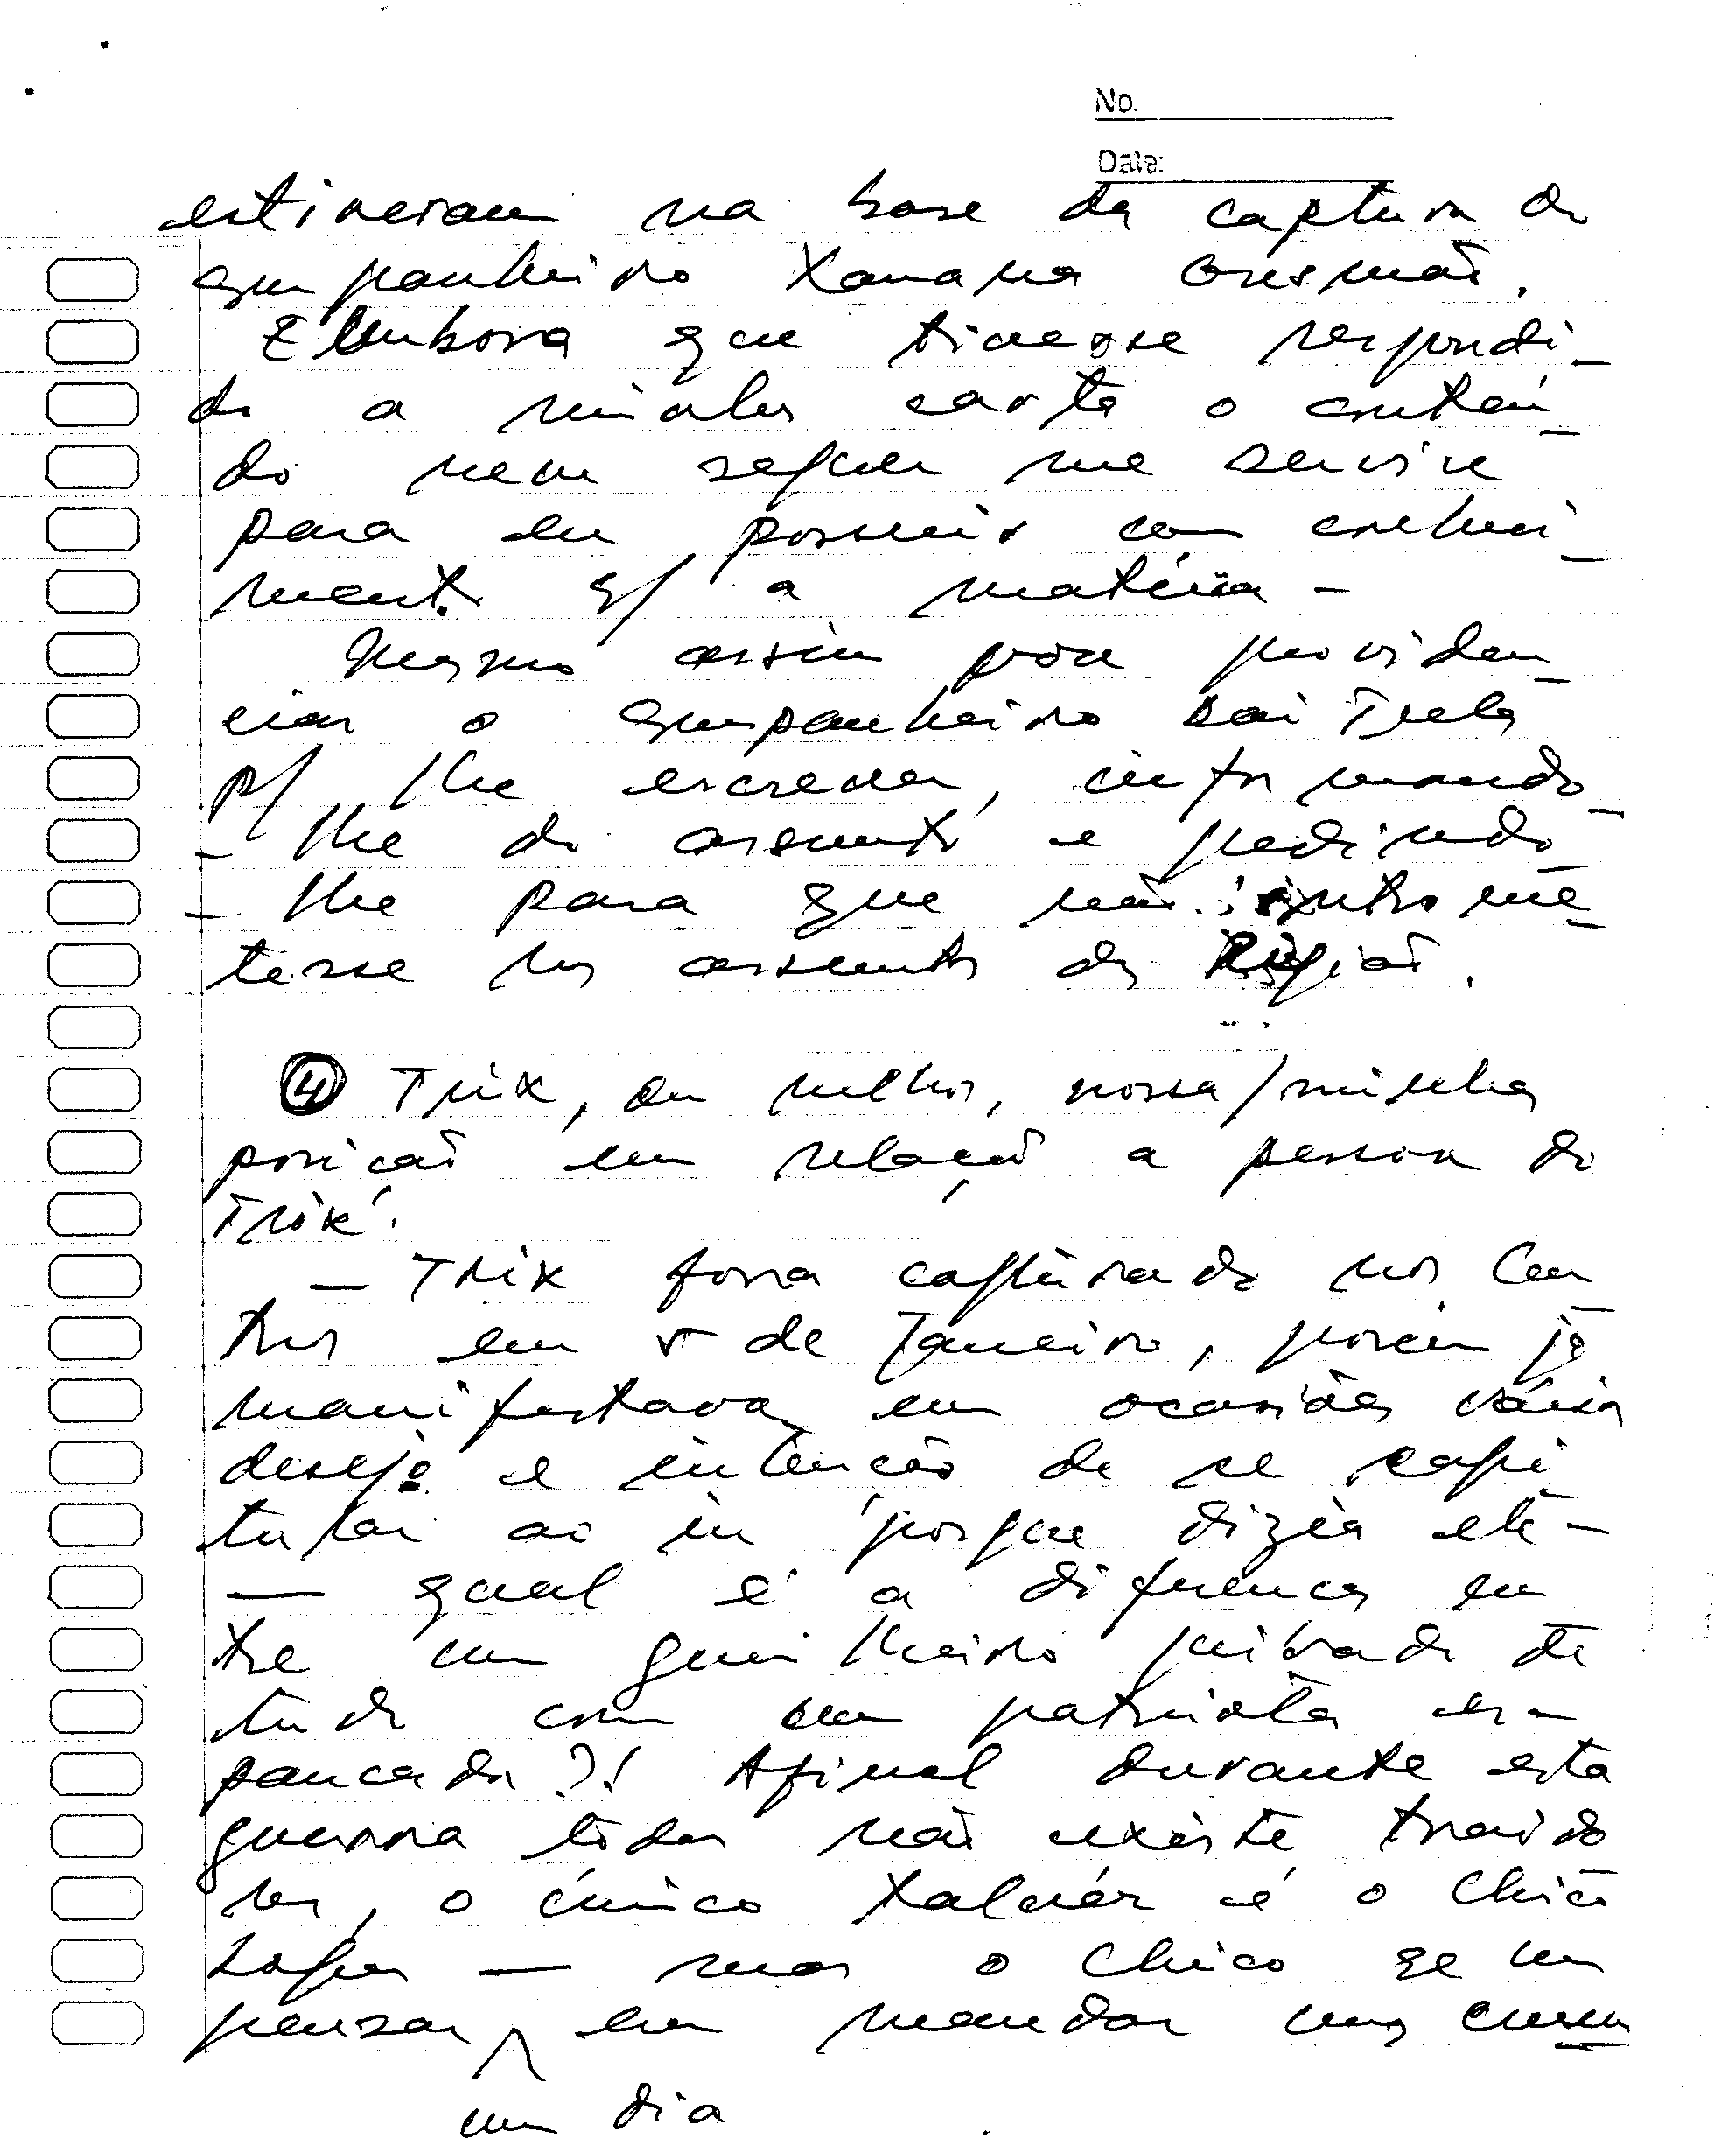 No.
Date:
estiveram na base da captura do
companheiro Xanana Gusmão.
E Embora que tivesse respondi-
do a minha carta o conteú-
do nem sequer me servire
para eu possuir com conheci-
mento s/ a matéria -
Mesmo assim para providen-
ciar o companheiro
p/ lhe escrever, informando-
- lhe do assunto e pedindo-
- lhe para que não introme-
tesse nos assuntos da Região.
④ Trix, ou melhor, nossa/minha
posição em relação a pessoa do
Trix.
- Trix fora capturado nos Cen-
tros em 5 de Janeiro, porém já
manifestava em ocasiões várias
desejo e intenção de se capi-
tular ao in porque dizia ele -
— qual é a diferença en
tre um guerrilheiro privado de
tudo com um patriota es-
pancado?! Afinal durante esta
guerra toda não existe traido
res, o único é o Chico
Lopes — mas o Chico se em
pensar em mandar uns
um dia